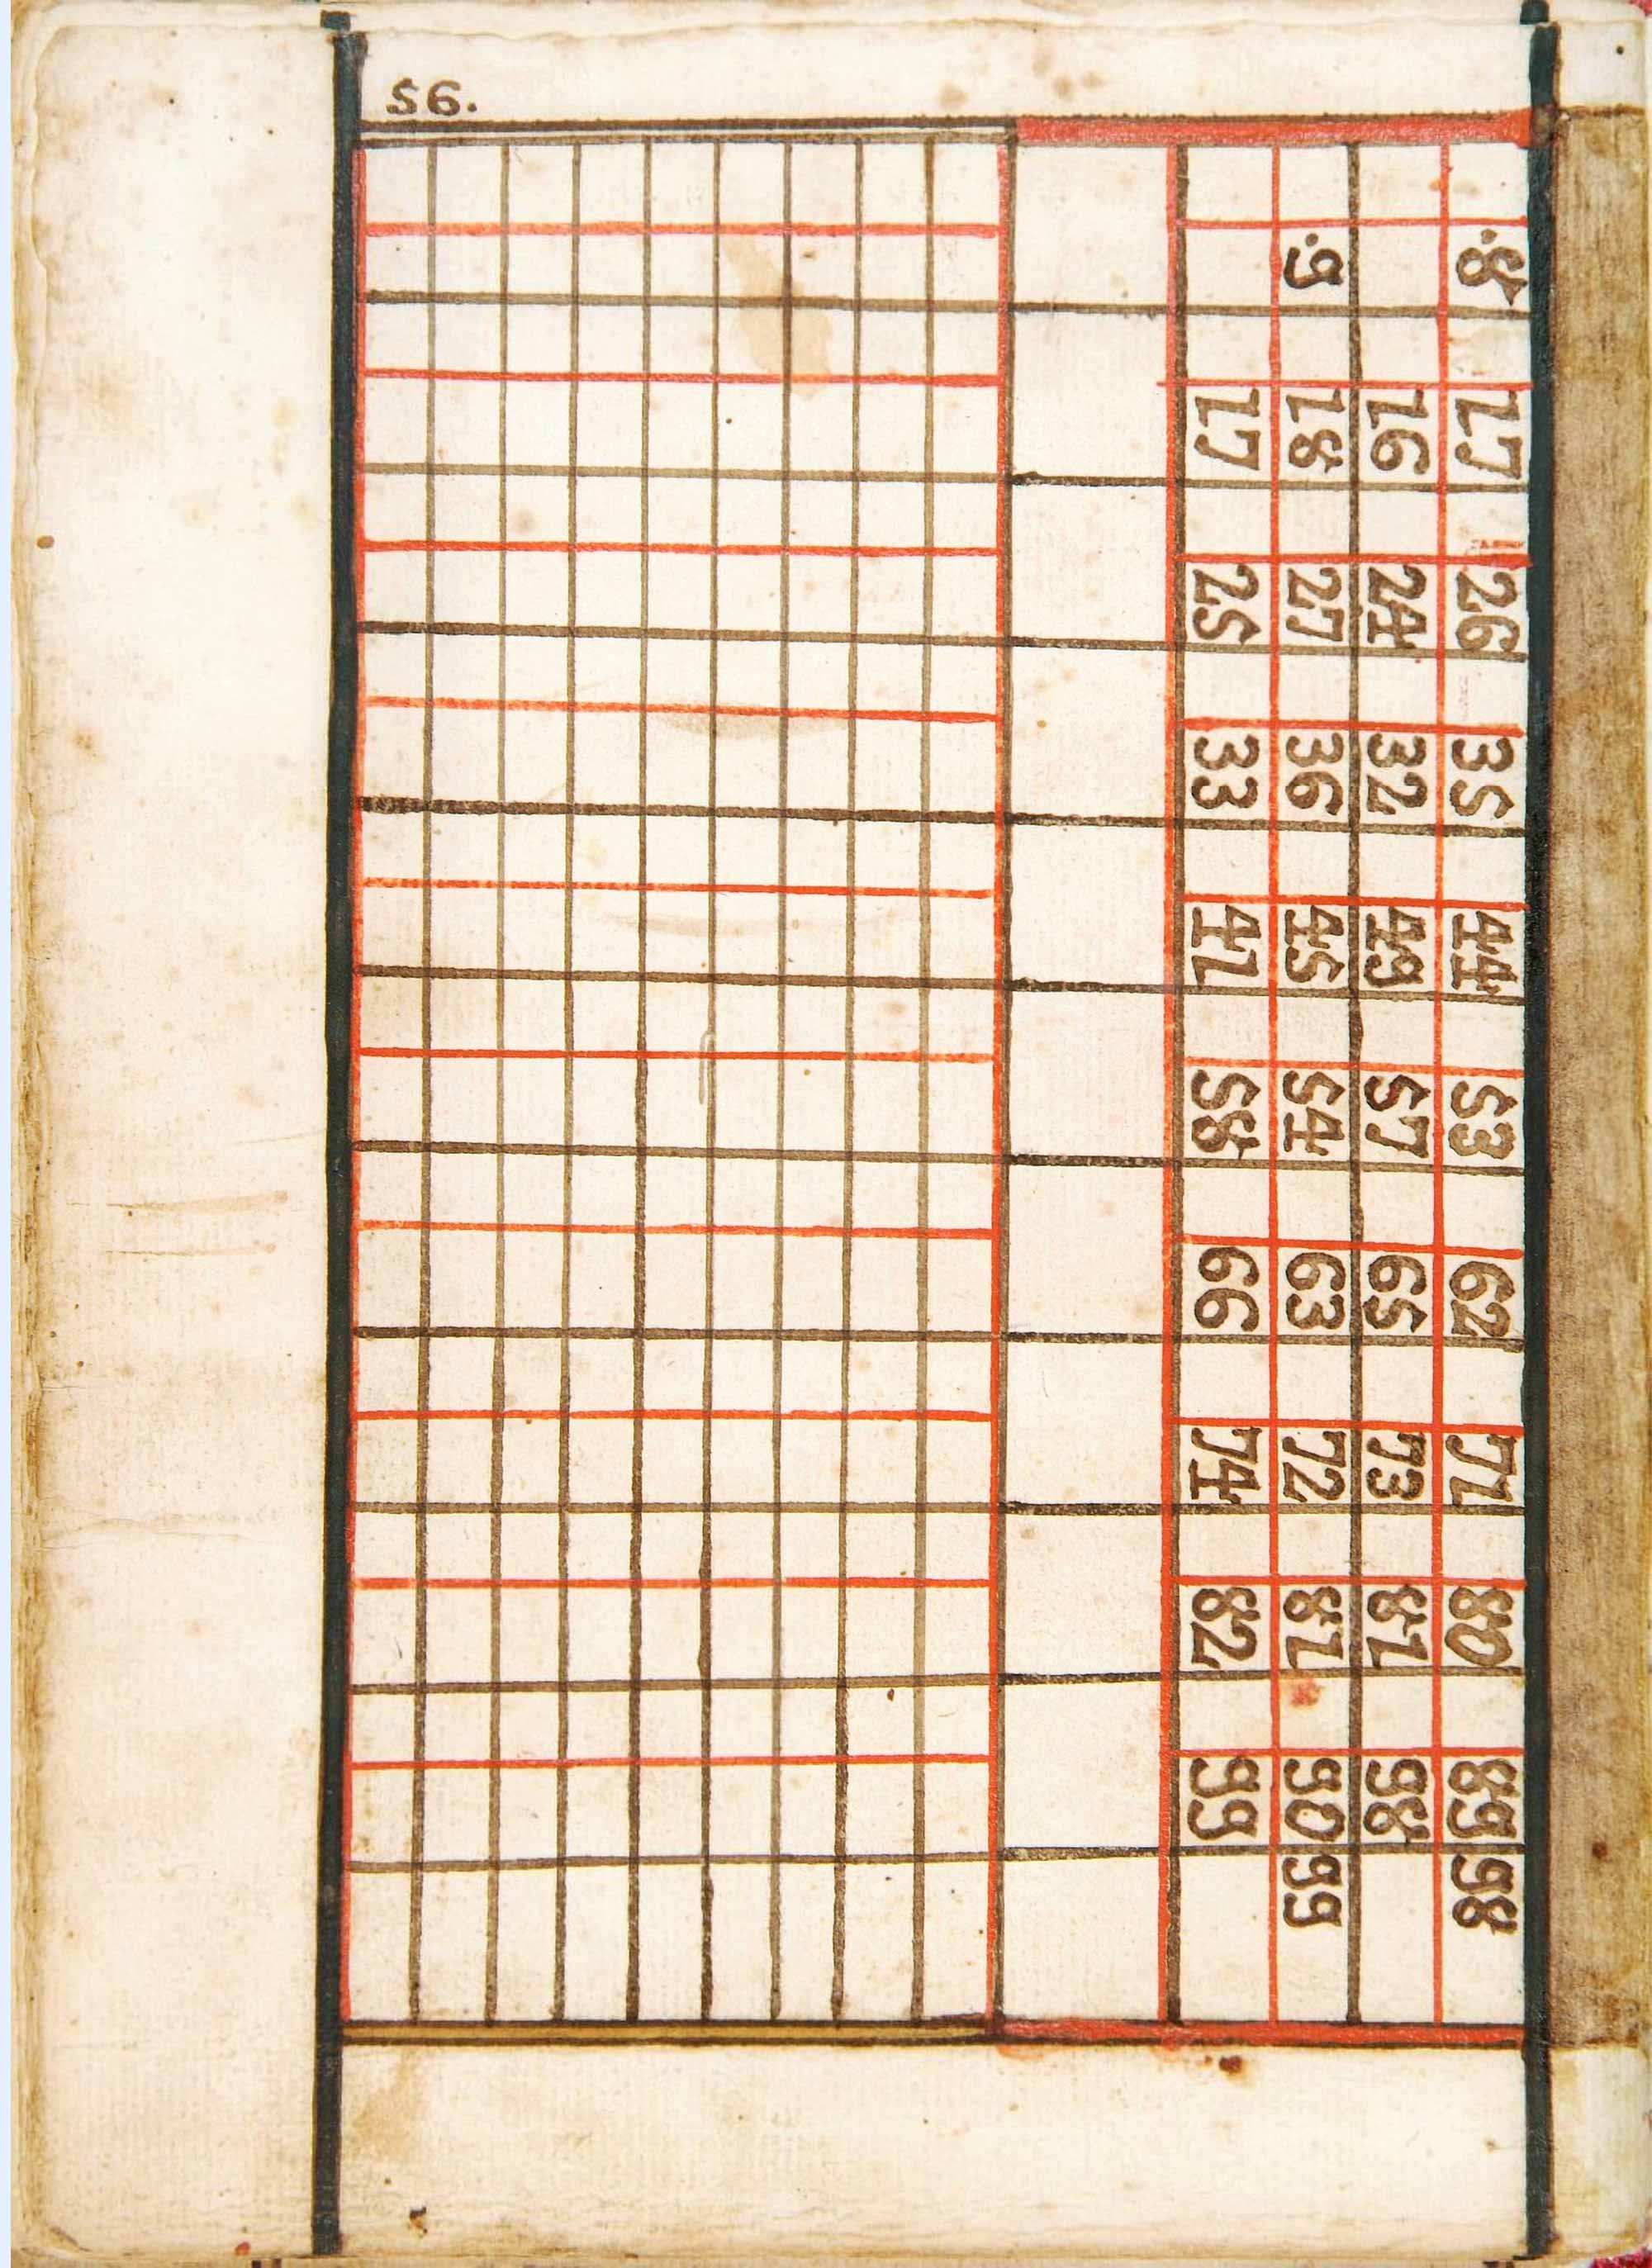 56.
.8. 17 26 35 44 53 62 71 80 89 98
16 24 32 49 57 65 73 81 98
.9 18 27 36 45 54 63 72 81 90 99
17 25 33 41 58 66 74 82 99